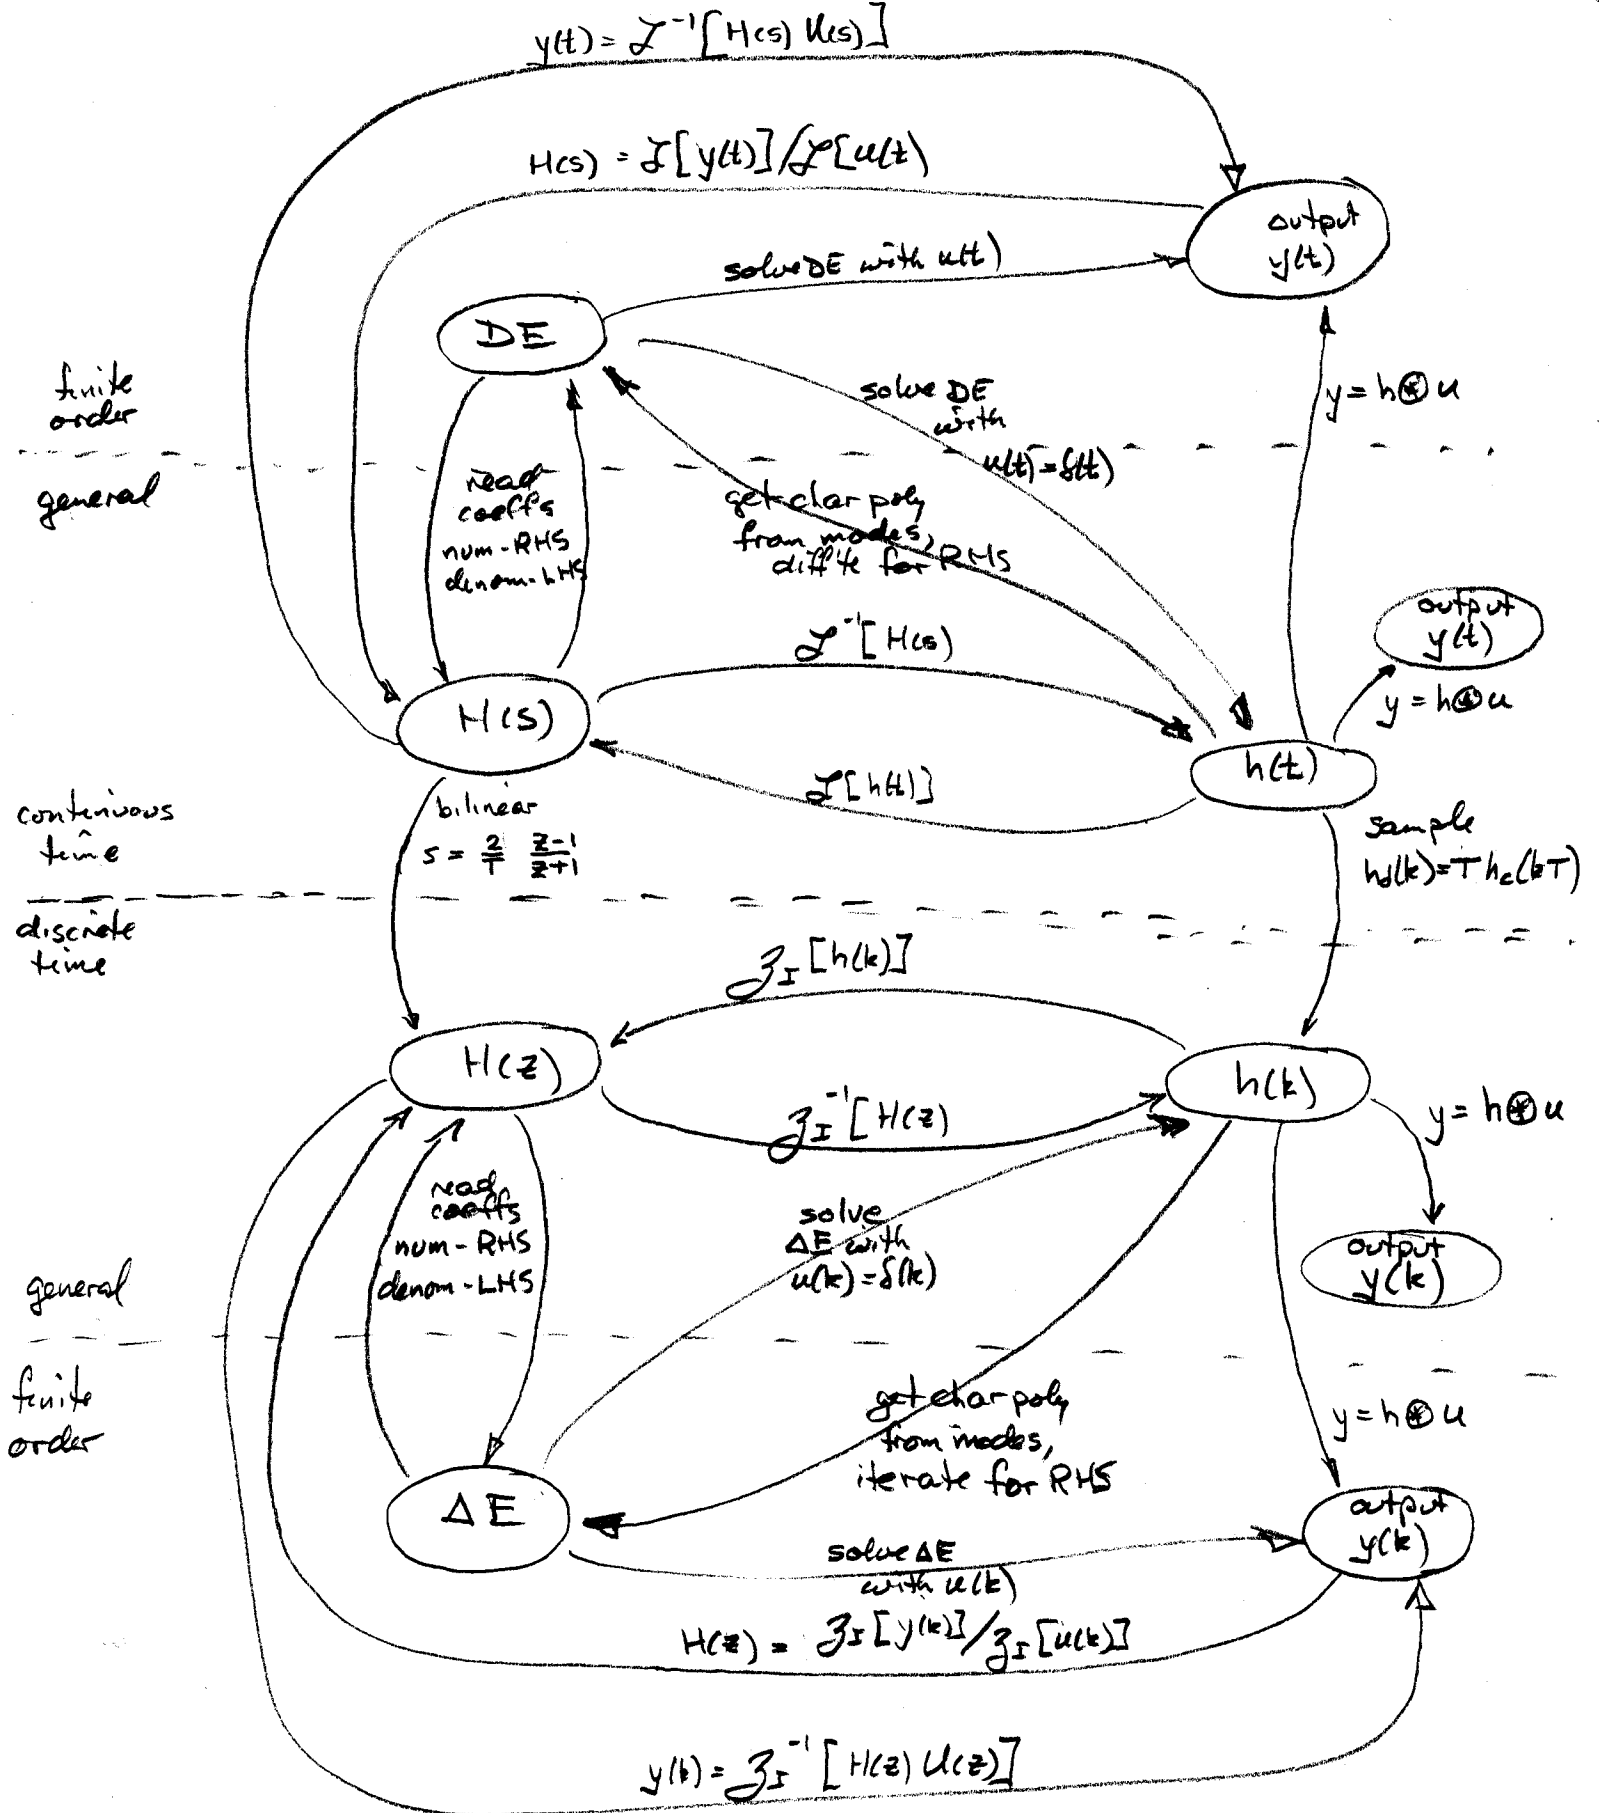 y(t) = ℒ⁻¹[H(s) U(s)]
H(s) = ℒ[y(t)]/ℒ[u(t)
output
y(t)
solve DE with u(t)
DE
finite
order
solve DE
with
u(t)=δ(t)
y = h⊛u
general
read
coeffs
num-RHS
denom-LHS
get char poly
from modes,
diff'te for RHS
output
y(t)
ℒ⁻¹[H(s)
y = h⊛u
H(s)
h(t)
ℒ[h(t)]
continuous
time
bilinear
s = 2/T z-1/z+1
sample
h_d(k)=T h_c(kT)
discrete
time
𝒵_I[h(k)]
H(z)
h(k)
𝒵_I⁻¹[H(z)
y = h⊛u
read
coeffs
num-RHS
denom-LHS
solve
ΔE with
u(k)=δ(k)
output
y(k)
general
finite
order
get char poly
from modes,
iterate for RHS
y = h⊛u
ΔE
output
y(k)
solve ΔE
with u(k)
H(z) = 𝒵_I[y(k)]/𝒵_I[u(k)]
y(k) = 𝒵_I⁻¹[H(z) U(z)]